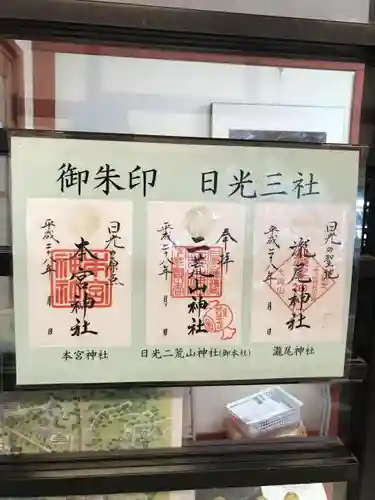 御朱印　日光三社
日光の原点
本宮神社
平成二十八年　月　日
本宮神社
奉拝
二荒山神社
平成二十八年　月　日
日光二荒山神社(御本社)
日光の聖地
瀧尾神社
平成二十八年　月　日
瀧尾神社